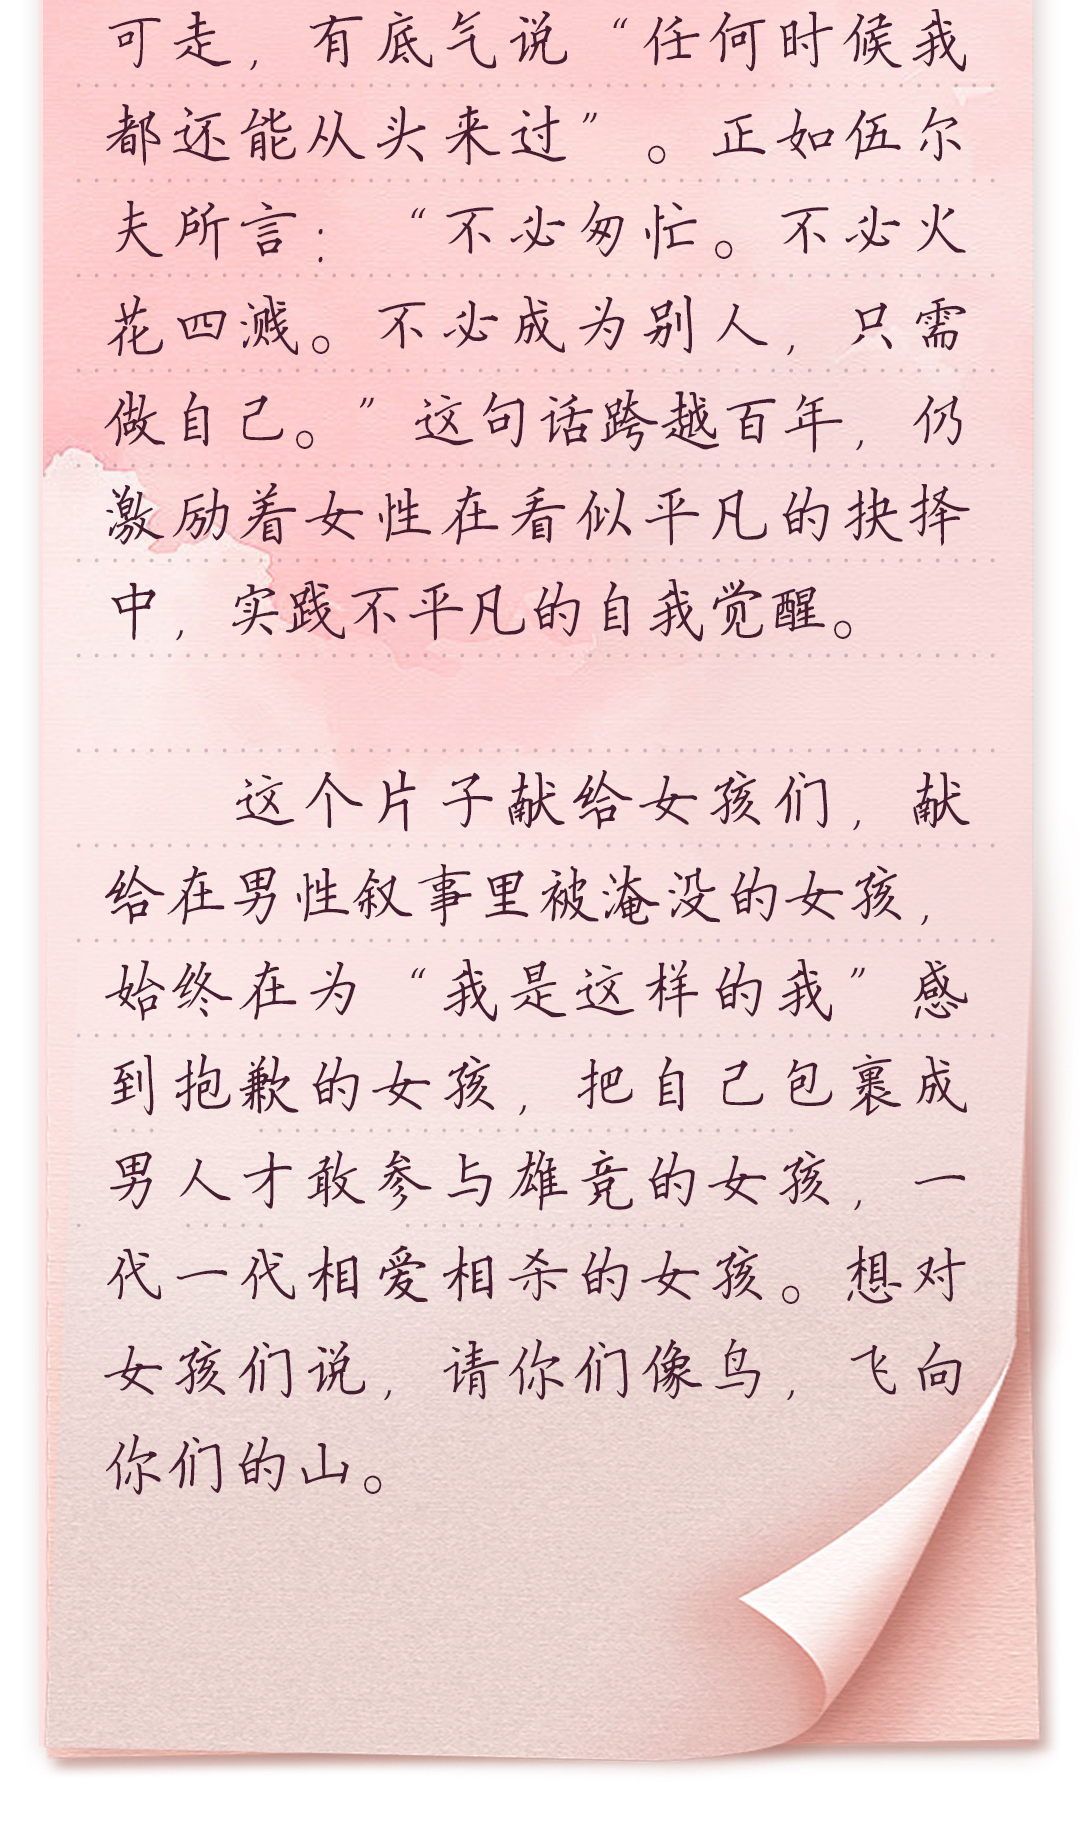 可走，有底气说“任何时候我
都还能从头来过”。正如伍尔
夫所言：“不必匆忙。不必火
花四溅。不必成为别人，只需
做自己。”这句话跨越百年，仍
激励着女性在看似平凡的抉择
中，实践不平凡的自我觉醒。
这个片子献给女孩们，献
给在男性叙事里被淹没的女孩，
始终在为“我是这样的我”感
到抱歉的女孩，把自己包裹成
男人才敢参与雄竞的女孩，一
代一代相爱相杀的女孩。想对
女孩们说，请你们像鸟，飞向
你们的山。